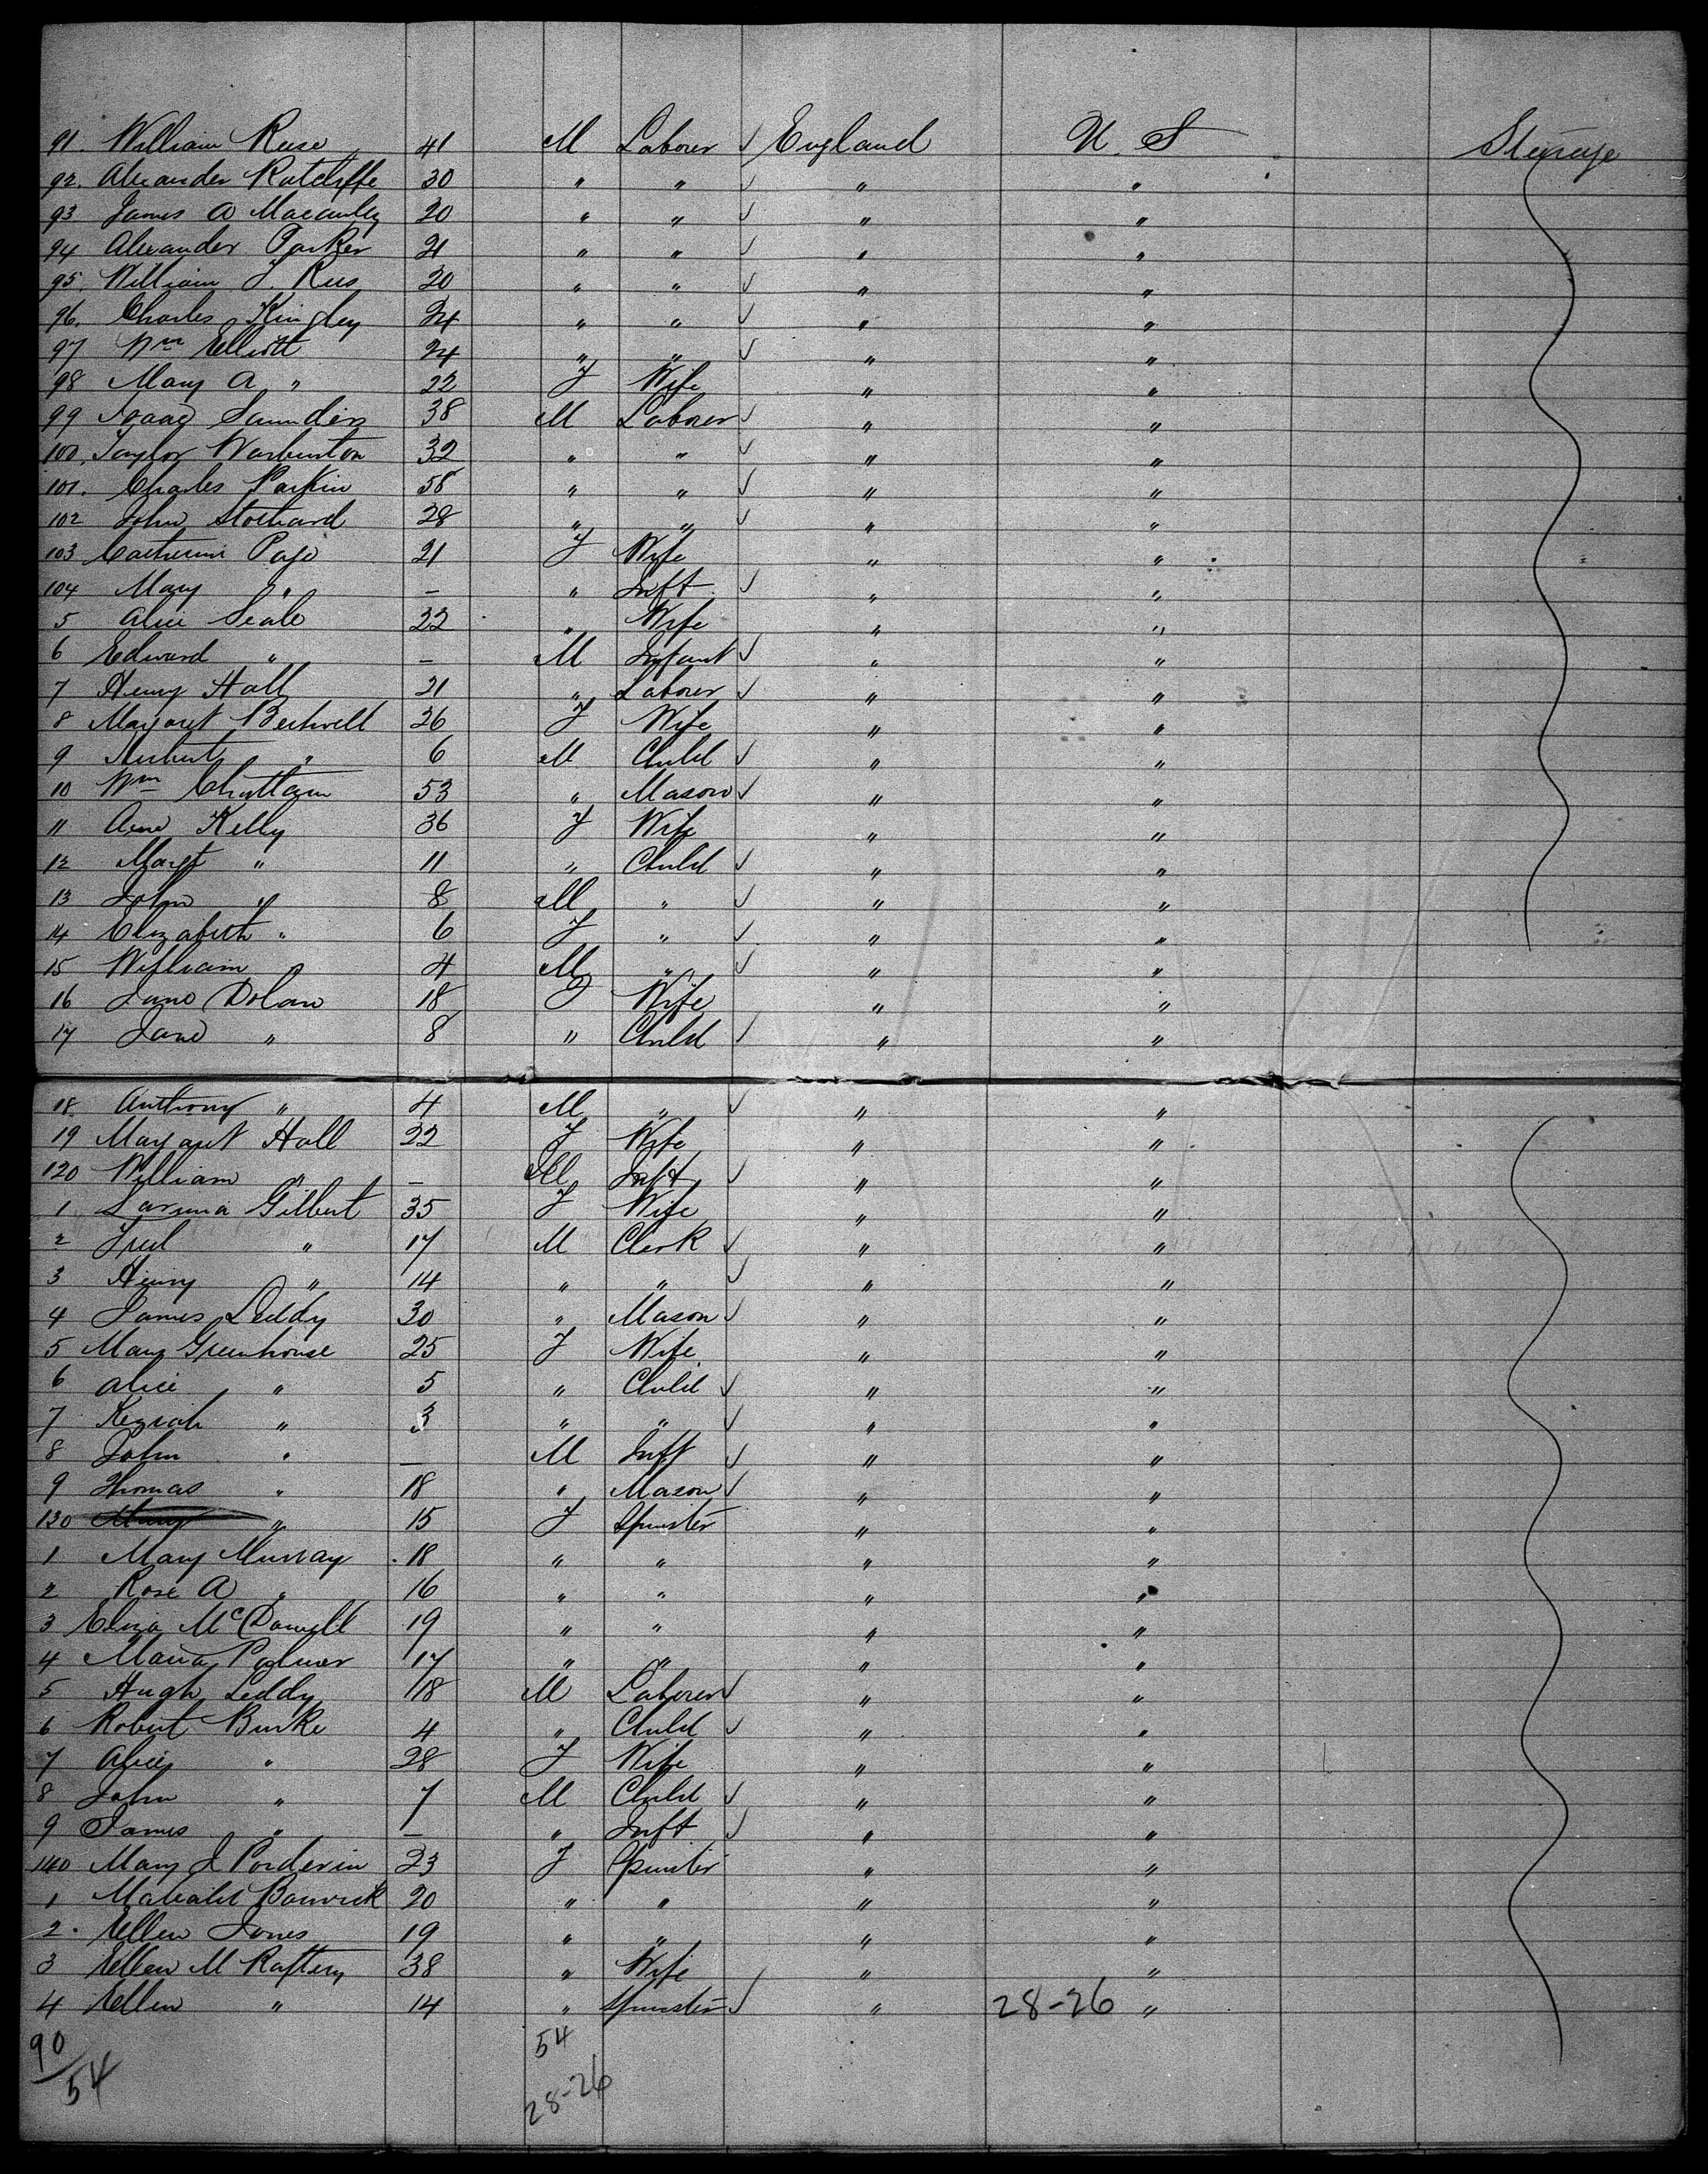 91. William Reese 41 M Laborer ✓ England U. S Steerage
92. Alexander Ratcliffe 30 " " ✓ " "
93 James A Macauley 20 " " ✓ " "
94 Alexander Parker 21 " " ✓ " "
95. William J. Rees 20 " " ✓ " "
96. Charles Kingley 24 " " ✓ " "
97 Wm Elliott 24 " " ✓ " "
98 Mary A " 22 F Wife " "
99 Isaac Saunders 38 M Laborer ✓ " "
100. Taylor Warburton 32 " " ✓ " "
101. Charles Parkin 58 " " ✓ " "
102 John Stothard 28 " " ✓ " "
103 Catherine Page 21 F Wife " "
104 Mary " – " Inft ✓ " "
5 Alice Seale 22 " Wife " "
6 Edward " – M Infant ✓ " "
7 Henry Hall 21 " Laborer ✓ " "
8 Margaret 26 F Wife " "
9 Herbert " 6 M Child ✓ " "
10 Wm 53 " Mason ✓ " "
11 Ann Kelly 36 F Wife " "
12 Margt " 11 " Child ✓ " "
13 John " 8 M " ✓ " "
14 Elizabeth " 6 F " ✓ " "
15 William " 4 M " ✓ " "
16 Jane Dolan 18 F Wife " "
17 Jane " 8 " Child ✓ " "
18. Anthony " 4 M " ✓ " "
19 Margaret Hall 22 F Wife " "
120 William " – M Inft ✓ " "
1 Gilbert 35 F Wife " "
2 Fred " 17 M Clerk ✓ " "
3 Henry " 14 " " ✓ " "
4 James Leddy 30 " Mason ✓ " "
5 Mary Greenhouse 25 F Wife " "
6 Alice " 5 " Child ✓ " "
7 Keziah " 3 " " ✓ " "
8 John " – M Inft ✓ " "
9 Thomas " 18 " Mason ✓ " "
130 Mary " 15 F Spinster " "
1 Mary Murray 18 " " " "
2 Rose A " 16 " " " "
3 Eliza McDowell 19 " " " "
4 Maria Palmer 17 " " " "
5 Hugh Leddy 18 M Laborer ✓ " "
6 Robert Burke 4 " Child ✓ " "
7 Alice " 28 F Wife " "
8 John " 7 M Child ✓ " "
9 James " – " Inft ✓ " "
140 Mary J 23 F Spinster " "
1 20 " " " "
2. Ellen Jones 19 " " " "
3 Ellen M Raftery 38 " Wife " "
4 Ellen " 14 " Spinster ✓ " 28-26 "
90 54
54
28-26